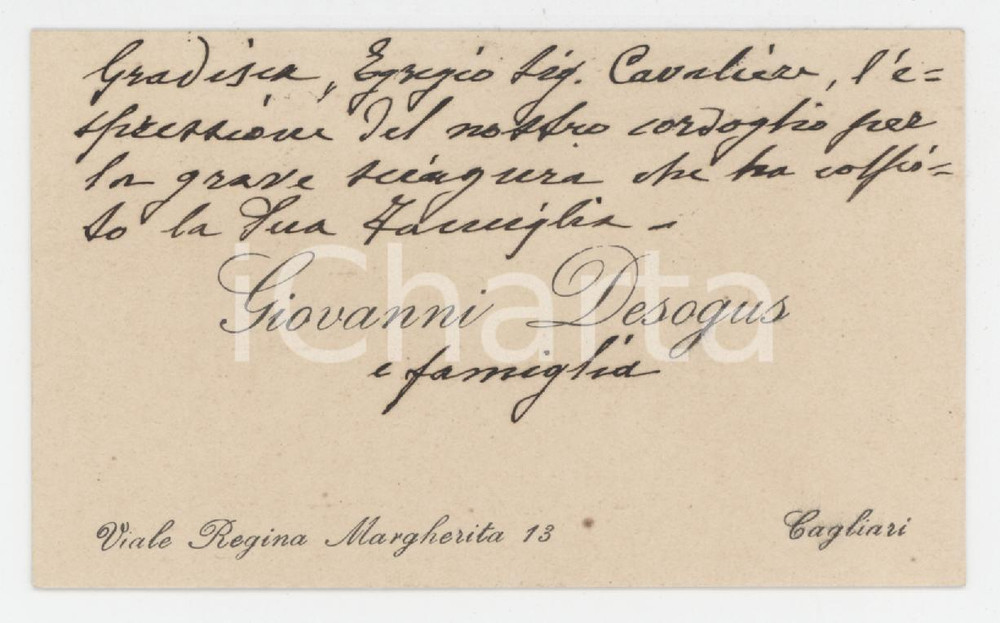 Gradisca, Egregio Sig. Cavaliere, l'e=
spressione del nostro cordoglio per
la grave sciagura che ha colpi=
to la Sua Famiglia -
Giovanni Desogus
e famiglia
Viale Regina Margherita 13
Cagliari
iCharta